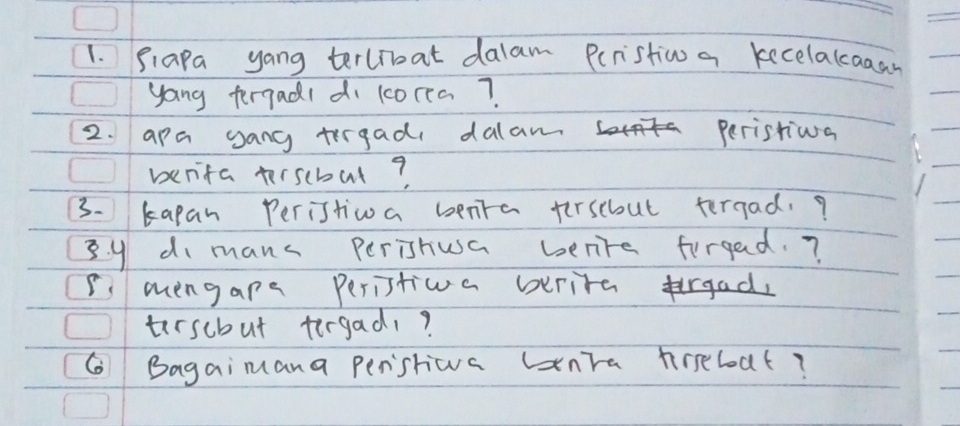 1. Siapa yang terlibat dalam Peristiwa kecelakaaan
yang tergadi di korea ?
2. apa yang tergadi dalam berita Peristiwa
berita tersebut ?
3. kapan Peristiwa berita tersebut tergadi ?
3.4 di mana Peristiwa berita tergadi ?
5. mengapa Peristiwa berita tergadi
tersebut tergadi ?
6 Bagaimana Peristiwa berita tersebut ?